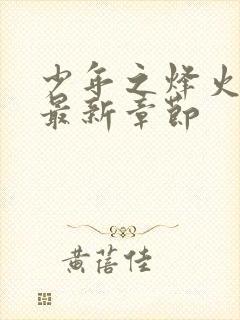 少年之烽火
最新章节
黄蓓佳